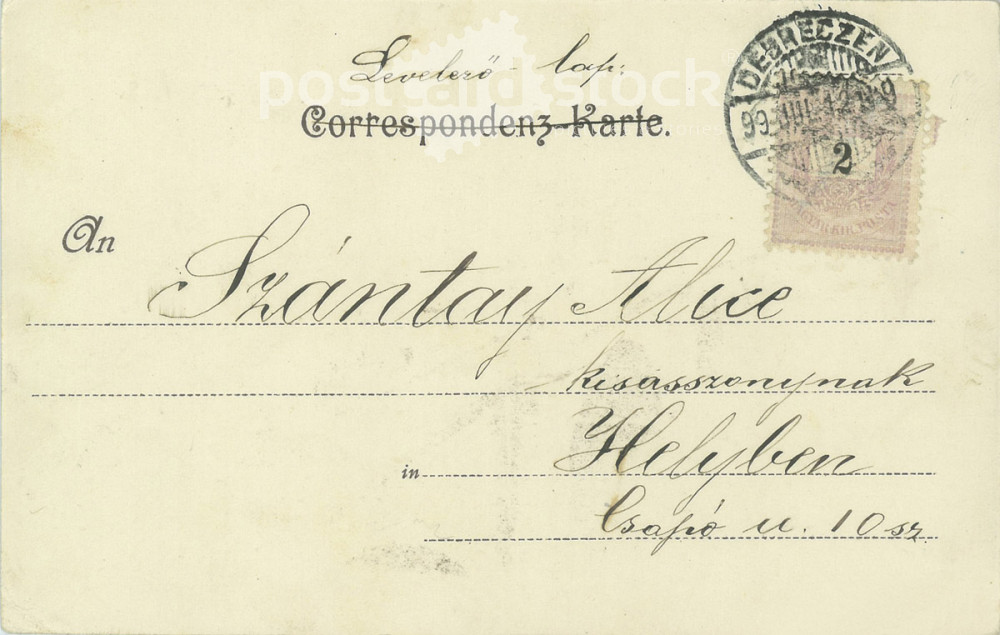 Levelező-lap.
postcardstock
Correspondenz-Karte.
DEBRECZEN
99
2
MAGYAR KIR. POSTA
An
Szántay Alice
kisasszonynak
in Helyben
Csapó u. 10 sz